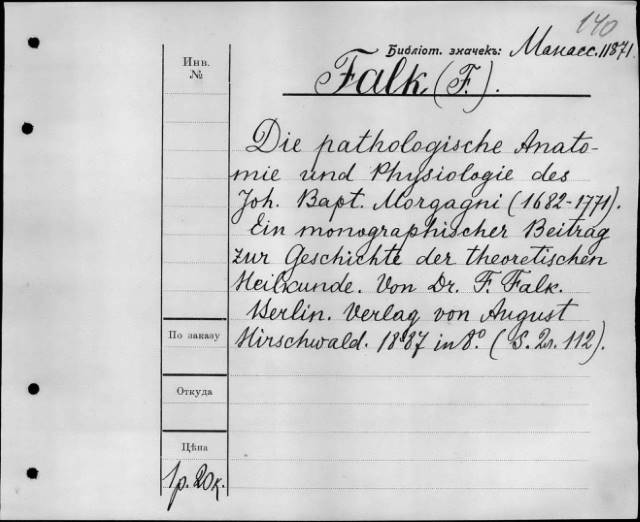 140
Библіот. значекъ: Манасс. 11871.
Инв.
№
Falk (F.).
Die pathologische Anato-
mie und Physiologie des
Joh. Bapt. Morgagni (1682-1771).
Ein monographischer Beitrag
zur Geschichte der theoretischen
Heilkunde. Von Dr. F. Falk.
Berlin. Verlag von August
Hirschwald. 1887 in 8º. (S. 2n. 112).
По заказу
Откуда
Цѣна
1 р. 20 к.